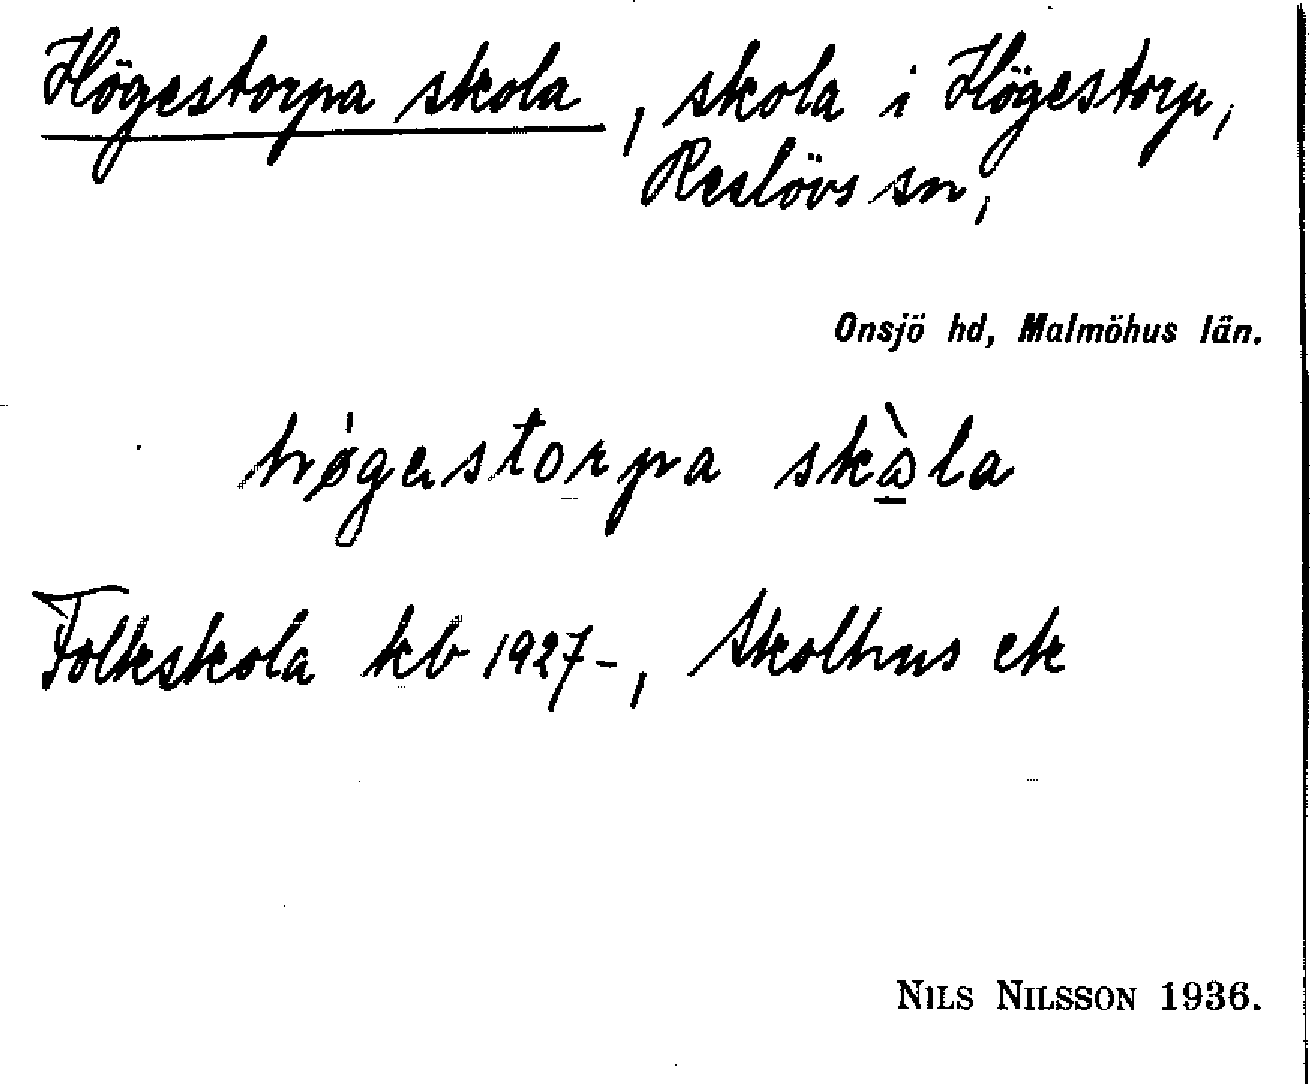 Högestorpa skola, skola i Högestorp,
Reslövs sn,
Onsjö hd, Malmöhus län.
høgastorpa skàla
Folkskola kb 1927-, Skolhus ek
NILS NILSSON 1936.